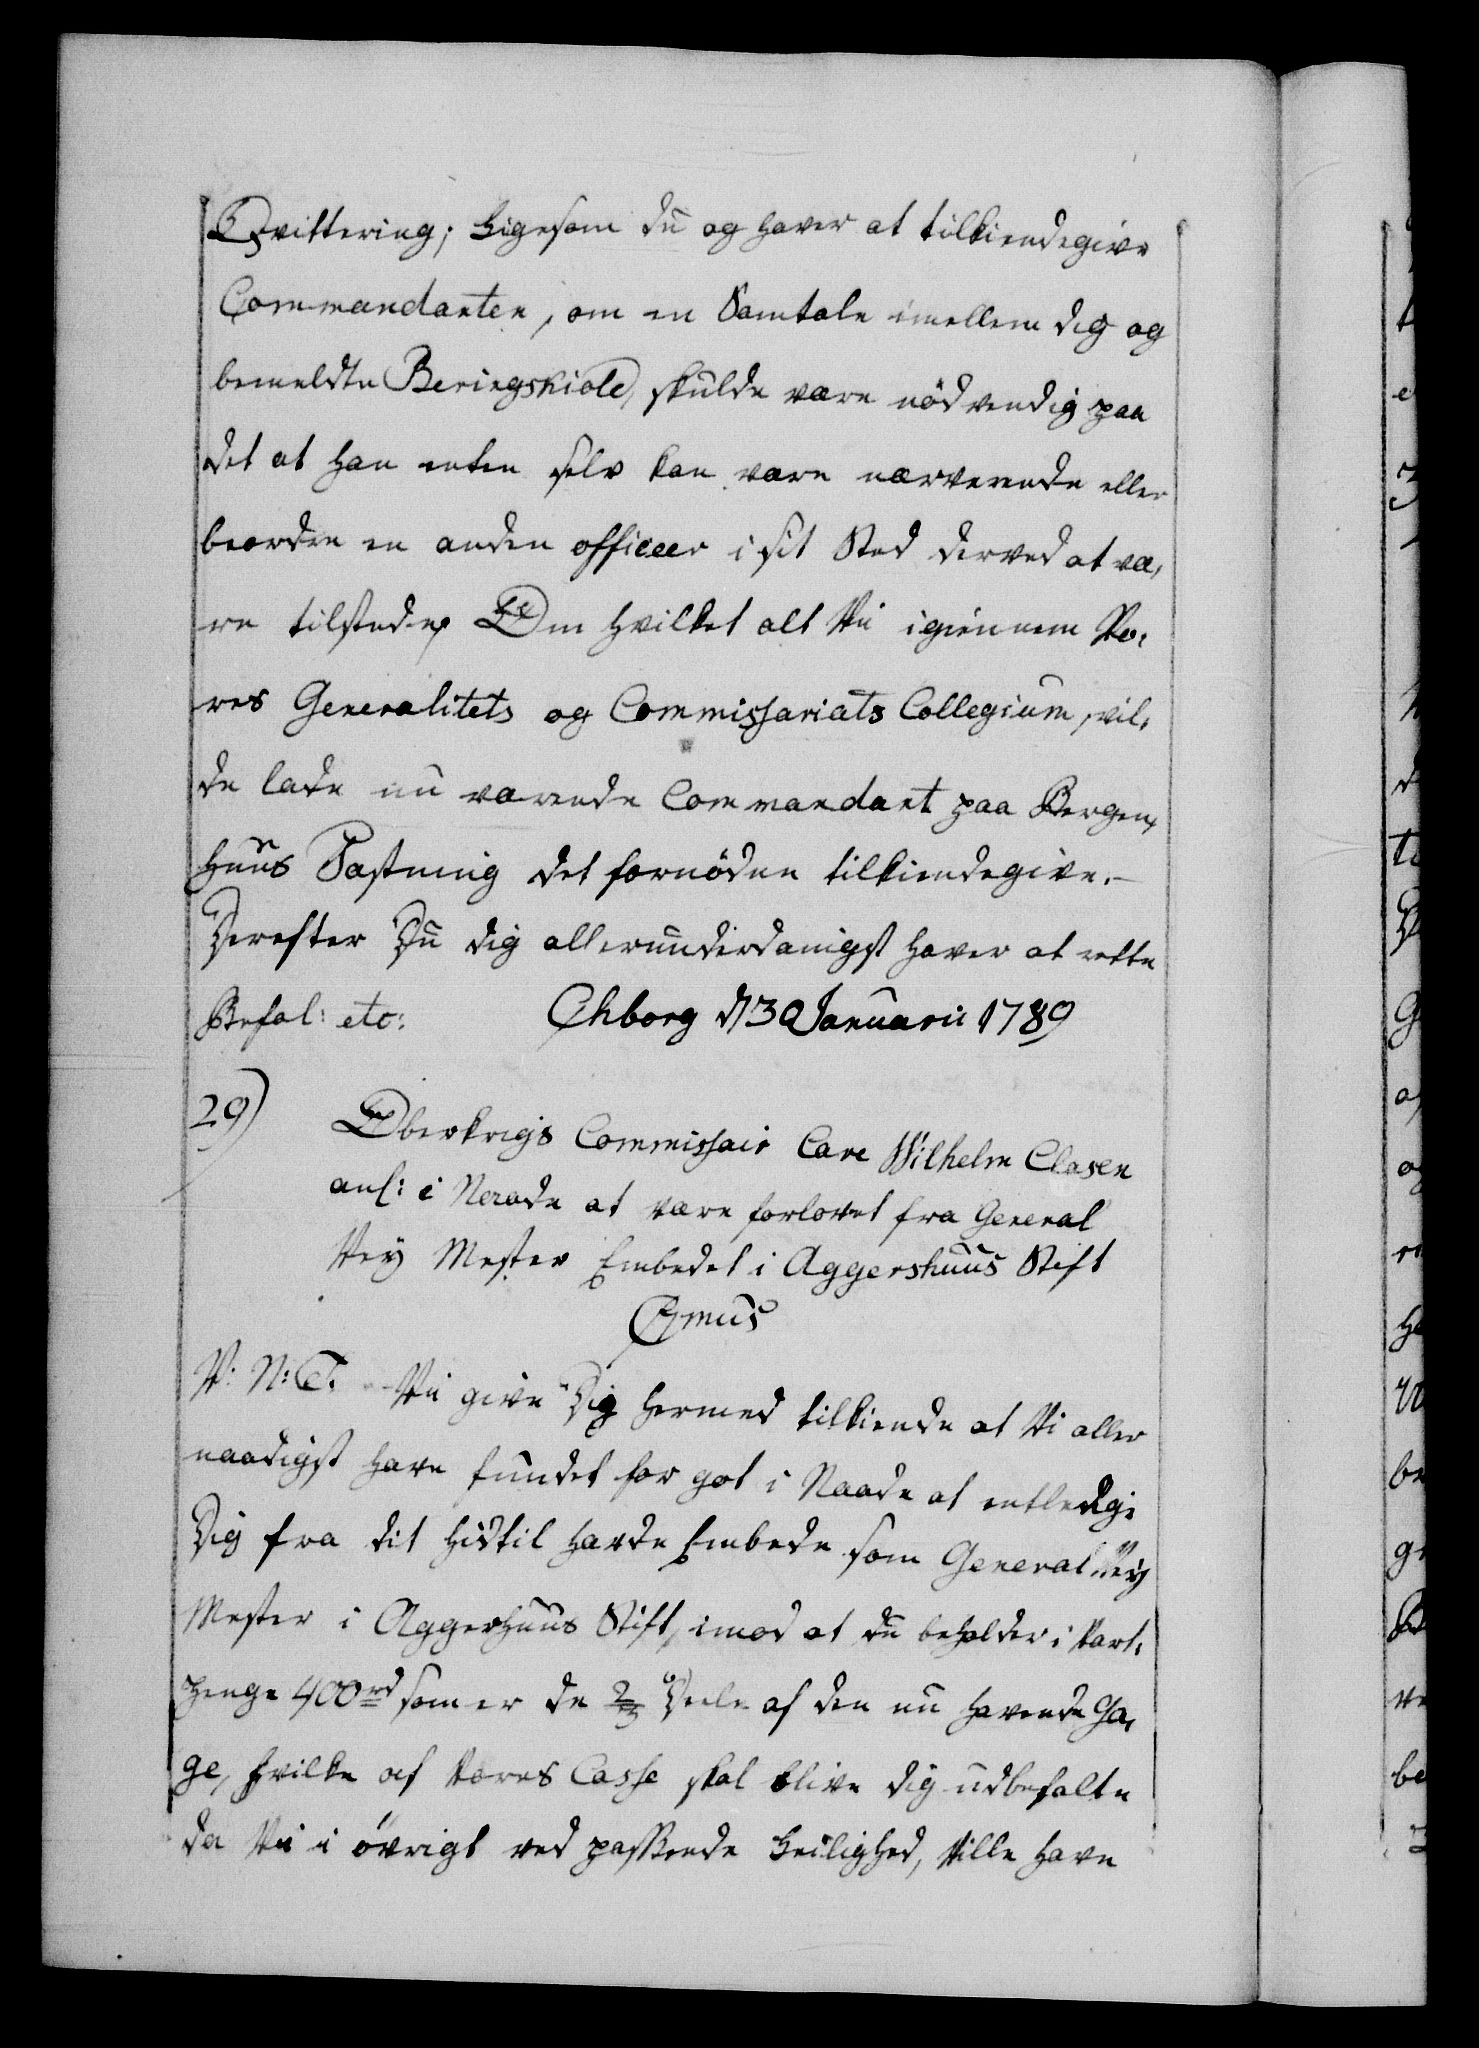 Qvittering; ligesom du og haver at tilkiendegive
Commandanten, om en Samtale imellem dig og
bemeldte Beringskiold, skulde være nödvendig paa
det at han enten selv kan være nærværende eller
beordre en anden officeer i sit Sted derved at væ,
re tilstede, Om hvilket alt Vii igiennem Vo,
res Generalitets og Commissariats Collegium, vil,
de lade nu værende Commandant paa Bergen,
huus Fæstning det fornödne tilkiendegive.-
Derefter Du dig allerunderdanigst haver at rette
Befal: etc: Chborg d 30 Januarii 1789
29) Oberkrigs Commissair Carl Wilhelm Clasen
anl: i Naade at være forlovet fra General
Vey Mester Embedet i Aggershuus Stift
C7mus
V: N: T. Vii give Dig hermed tilkiende at Vi aller
naadigst have fundet for got i Naade at entledige
Dig fra dit hidtil havde Embede som General Vey
Mester i Aggerhuus Stift, imod at du beholder i Vart,
penge 400 rd som er de 2/3 Deele af den nu havende Ga,
ge, hvilke af Vores Casse skal blive dig udbetalte
da Vii i övrigt ved passende Leilighed, Ville have